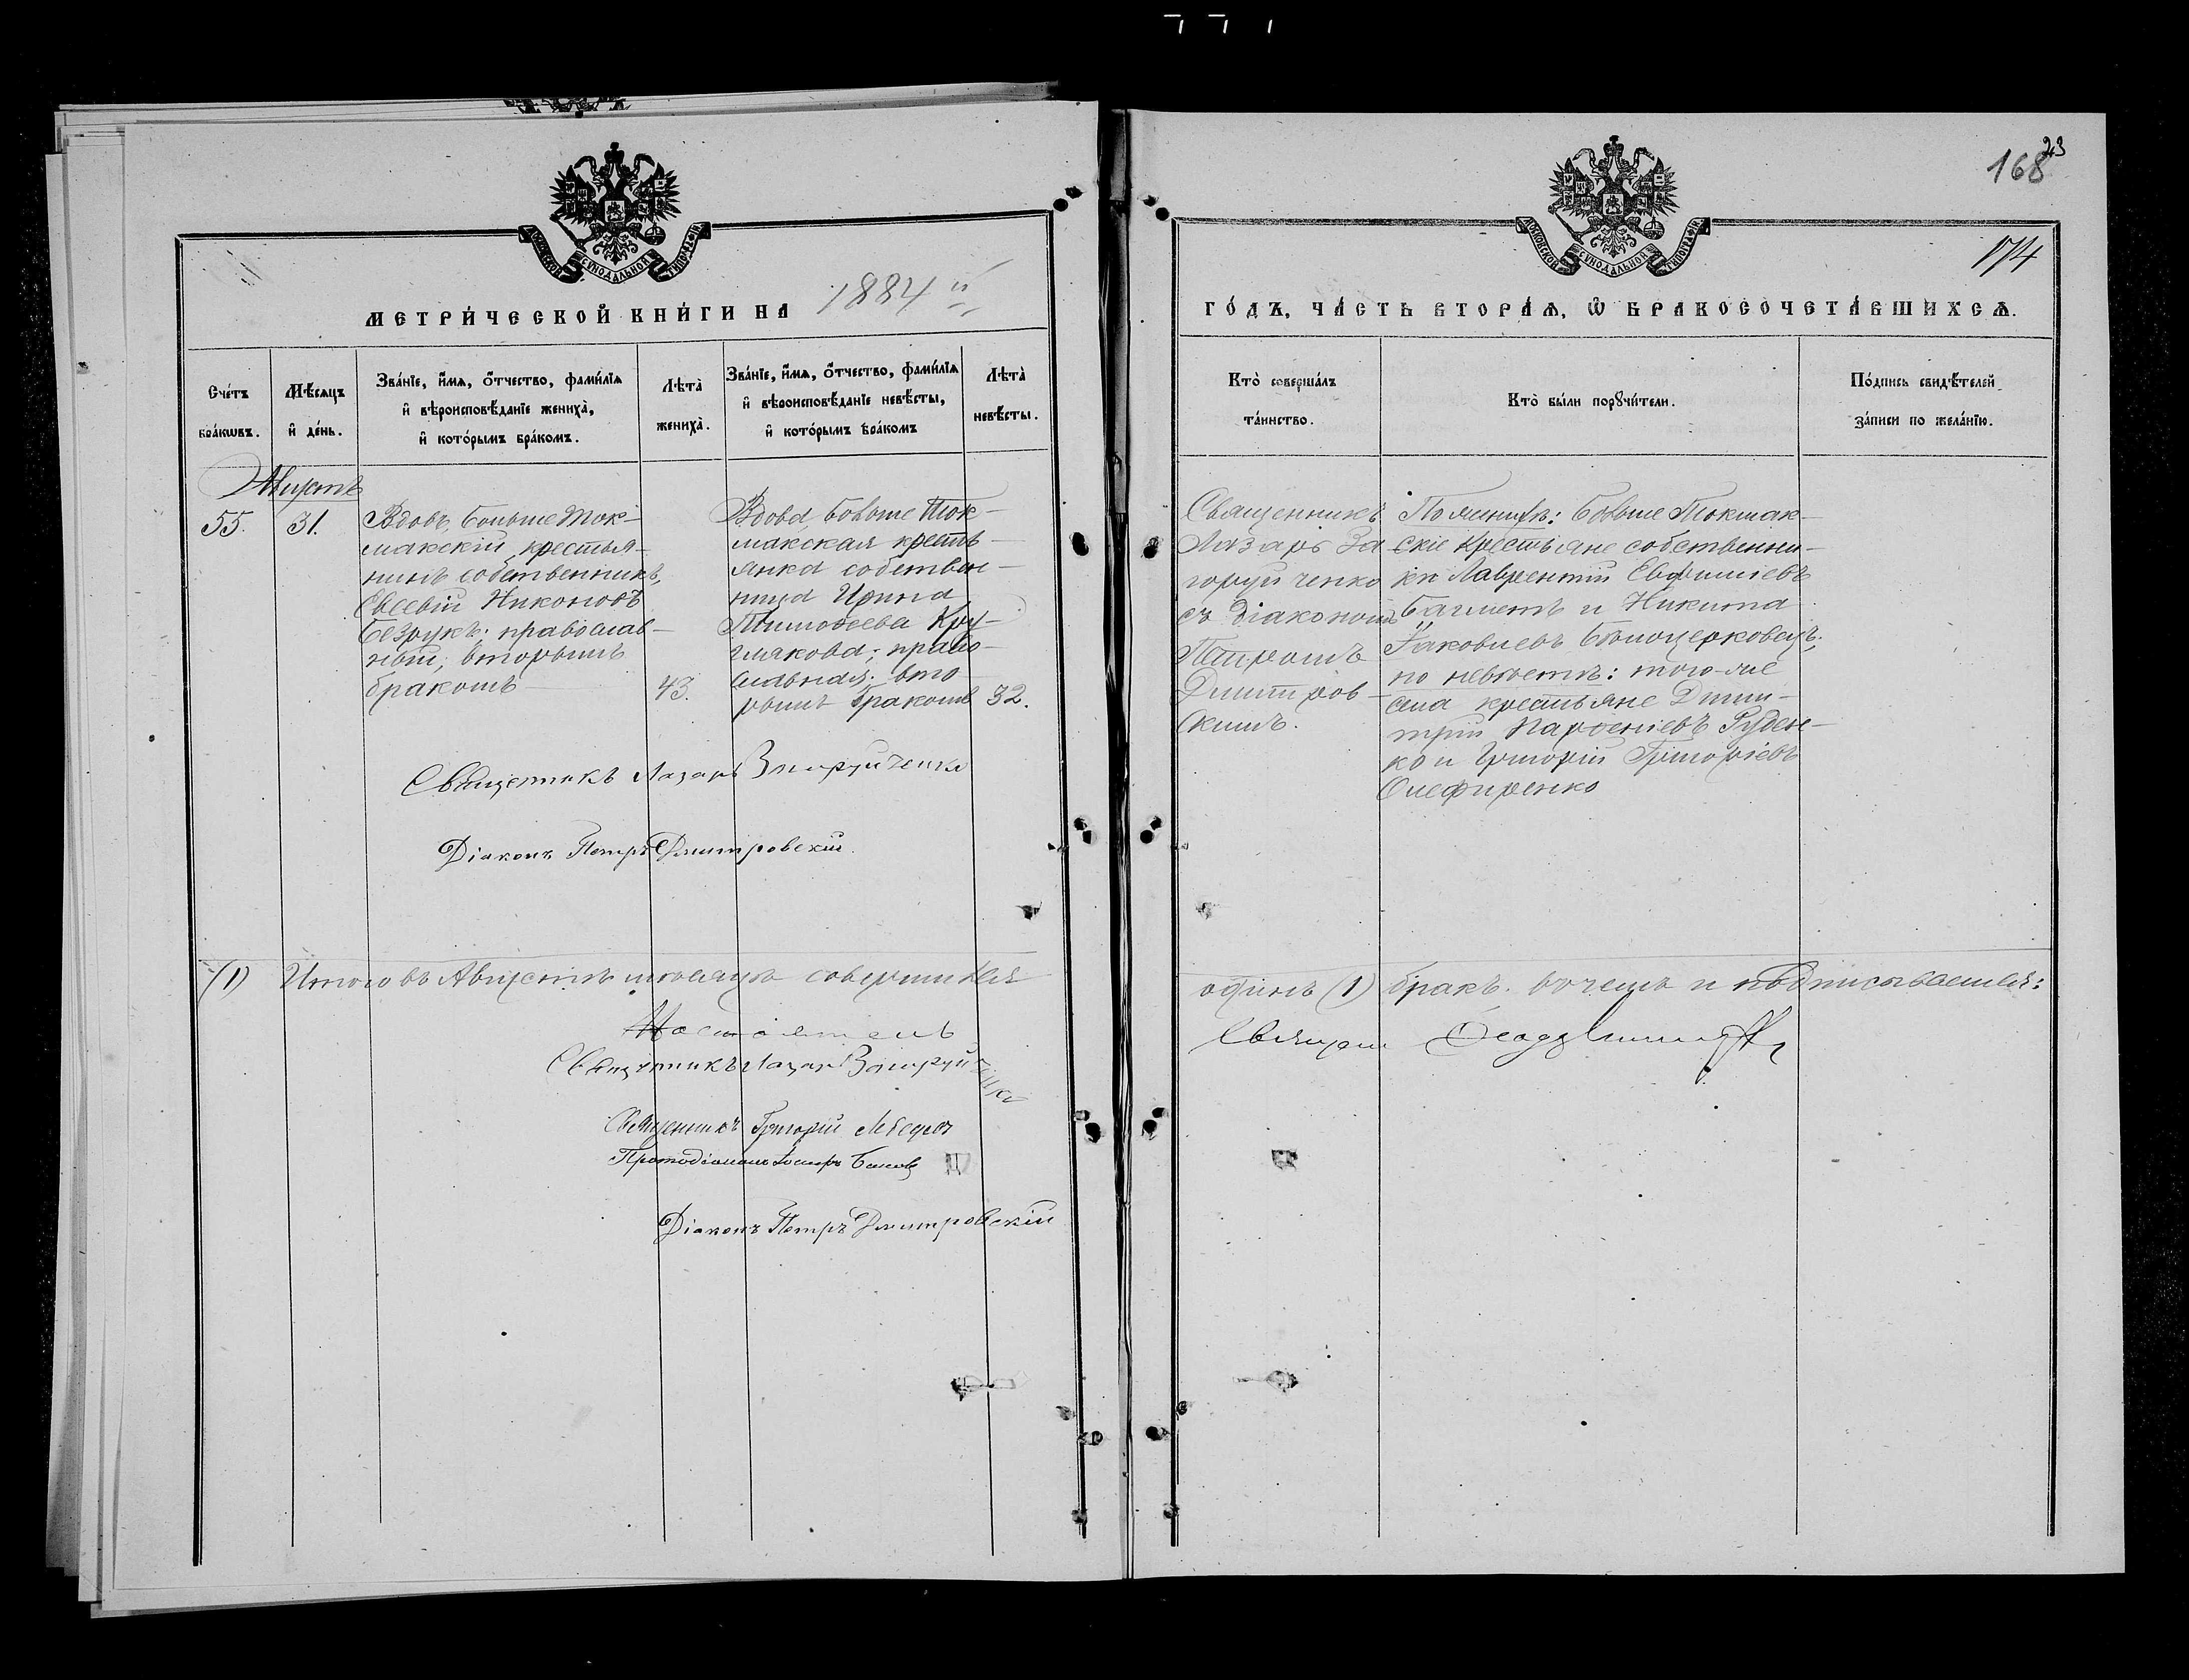 168 23
174
МОСКОВСКОЙ СѴНОДАЛЬНОЙ ТИПОГРАФІИ
МОСКОВСКОЙ СѴНОДАЛЬНОЙ ТИПОГРАФІИ
МЕТРИ́ЧЕСКОЙ КНИ́ГИ НА 1884 й
ГО́ДЪ, ЧА́СТЬ ВТОРА́Ѧ, Ѽ БРАКОСОЧЕТА́ВШИХСѦ.
Сче́тъ
бра́кѡвъ.
Мѣ́сѧцъ
и҆ де́нь.
Зва́нїе, и҆́мѧ, ѻ҆́тчество, фами́лїѧ
и҆ вѣроисповѣ́данїе жениха̀,
и҆ кото́рымъ бра́комъ.
Лѣта̀
жениха̀.
Зва́нїе, и҆́мѧ, ѻ҆́тчество, фами́лїѧ
и҆ вѣроисповѣ́данїе невѣ́сты,
и҆ кото́рымъ бра́комъ
Лѣта̀
невѣ́сты.
Кто̀ соверша́лъ
та́инство.
Кто̀ бы́ли порꙋчи́тели.
По́дпись свидѣ́телей
за́писи по жела́нїю.
Августъ
55.
31.
Вдовъ, больше Ток-
макскій крестья-
нинъ собственникъ,
Евсевій Никоновъ
Безрукъ; православ-
ный, вторымъ
бракомъ
43.
Вдова, больше Ток-
макская кресть-
янка собствен-
ница Ирина
Тимоѳеева Кру-
глякова; право-
славная; вто-
рымъ бракомъ
32.
Священникъ
Лазарь За-
горуйченко
съ діакономъ
Петромъ
Дмитров-
скимъ.
По женихѣ: больше Токмак-
скіе крестьяне собственни-
ки Лаврентій Евфиміевъ
Багметъ и Никита
Іаковлевъ Бѣлоцерковецъ;
по невѣстѣ: того-же
села крестьяне Дими-
трій Парѳеніевъ Руден-
ко и Григорій Григоріевъ
Олефиренко
Священникъ Лазарь Загоруйченко
Діаконъ Петръ Дмитровскій.
(1) Итого въ Августѣ мѣсяцѣ совершился
одинъ (1) бракъ. въ чемъ и подписываемся:
Настоятель
Священникъ Лазарь Загоруйченко
Священникъ Григорій
Протодіаконъ
Діаконъ Петръ Дмитровскій